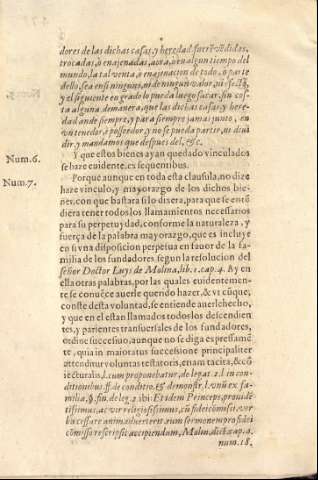 dores de las dichas casas, y heredad fuere vendidas,
trocadas, o enajenadas, aora, o en algun tiempo del
mundo, la tal venta, o enajenacion de todo, o parte
dello, sea en si ninguna, ni de ningun valor, ni efecto,
y el siguiente en grado lo pueda luego sacar, sin cos-
ta alguna, de manera, que las dichas casas, y here-
dad anden siempre, y para siempre jamas junto, en
un tenedor, o posseedor, y no se pueda partir, ni diui
dir, y mandamos que despues del, &c.
Num.6.
Y que estos bienes ayan quedado vinculados
se haze euidente, ex sequentibus.
Num.7.
Porque aunque en toda esta clausula, no dize
haze vinculo, y mayorazgo de los dichos bie-
nes, con que bastara si lo dixera, para que se enté
diera tener todos los llamamientos necessarios
para su perpetuydad, conforme la naturaleza, y
fuerça de la palabra mayorazgo, que es incluye
en si vna disposicion perpetua en fauor de la fa-
milia de los fundadores segun la resolucion del
señor Doctor Luys de Molina, lib.1.cap.4. Ay en
ella otras palabras, por las quales euidentemen-
te se conuéce auerle querido hazer, & vt cûque,
conste desta voluntad, se entiende auerl hecho,
y que en el estan llamados todos los descenden
tes, y parientes transuersales de los fundadores,
ordine successiuo, aunque no se diga expressamé
te, quia in maioratus successione principaliter
attenditur voluntas testatoris, etiam tacita, & cô
iecturalis, l.cum proponebatur, de legat.2.l.in con
ditionibus.ff.de conditio.& demonstr.l.vnû ex fa-
milia, §.fin.de leg.2.ibi: Et idem Princeps, prouidé
tissimus, ac vir religiosissimus, cû fideicômiss. ver
ba cessare animaduerteret, eum sermonem pro fidei
cômisso rescripsit accipiendum, Molin. dict. cap.4.
num.18.